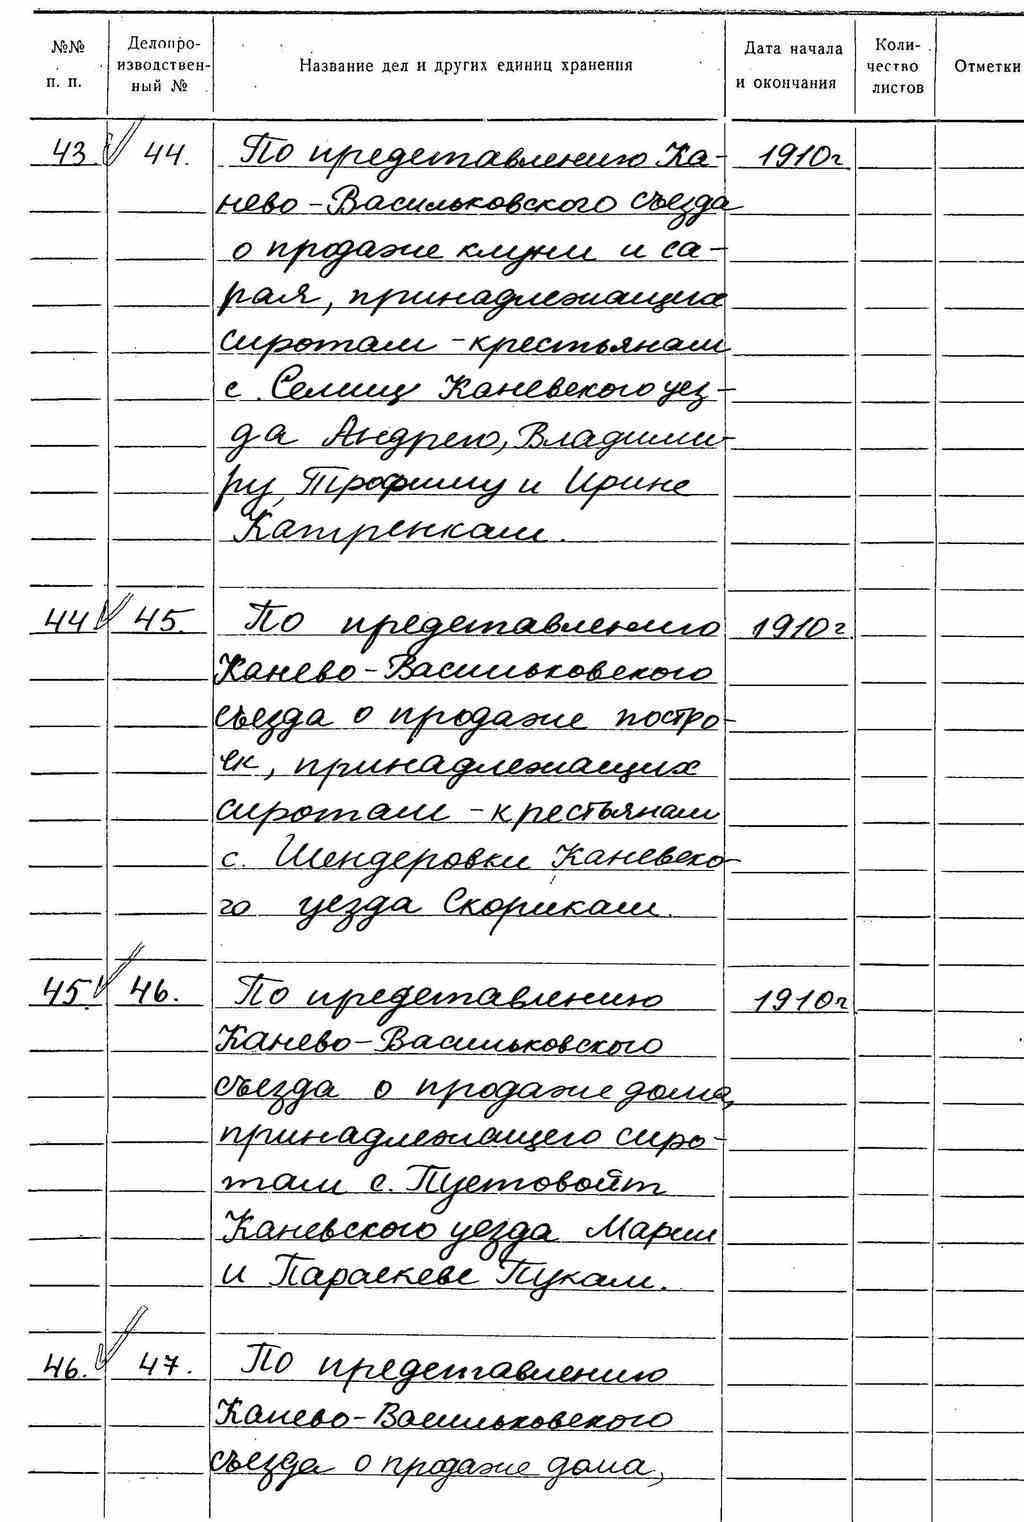 №№ п. п. Делопроизводственный № Название дел и других единиц хранения Дата начала и окончания Количество листов Отметки
43. 44. По представлению Ка- 1910г
нево-Васильковского съезда
о продаже клуни и са-
рая, принадлежащих
сиротам-крестьянам
с. Селищ Каневского уез-
да Андрею, Владими-
ру, Трофиму и Ирине
Катренкам.
44 45. По представлению 1910г.
Канево-Васильковского
съезда о продаже постро-
ек, принадлежащих
сиротам-крестьянам
с. Шендеровки Каневско-
го уезда Скорикам.
45. 46. По представлению 1910г
Канево-Васильковского
съезда о продаже дома,
принадлежащего сиро-
там с. Пустовойт
Каневского уезда Марии
и Параскеве Пукам.
46. 47. По представлению
Канево-Васильковского
съезда о продаже дома,